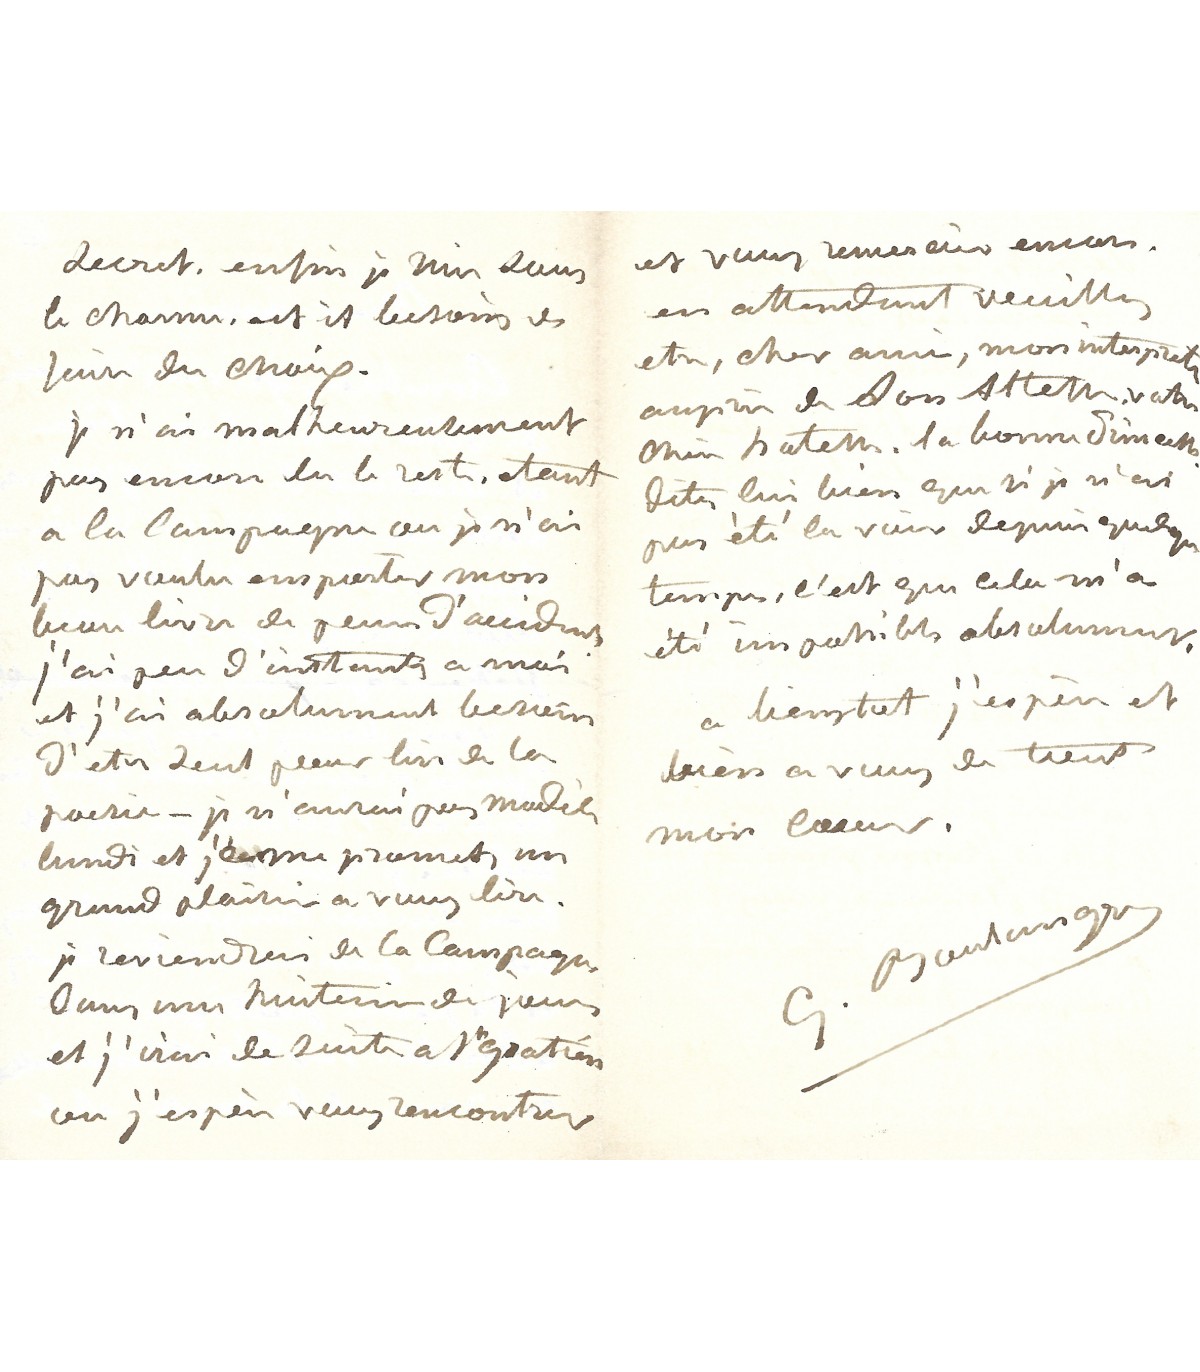 secret. enfin je suis sous
le charme. est il besoin de
faire du choix.
je n'ai malheureusement
pas encore lu le reste. etant
a la Campagne ou je n'ai
pas voulu emporter mon
beau livre de peur d'accidents
j'ai peu d'instants a moi
et j'ai absolument besoin
d'etre seul pour lire de la
poesie – je n'aurai pas modèle
lundi et je me promets un
grand plaisir a vous lire.
je reviendrai de la Campagne
dans une huitaine de jours
et j'irai de suite a St Gratien
ou j'espère vous rencontrer
et vous remercier encore.
en attendant veuillez
etre, cher ami, mon interprète
auprès de Son Altesse, votre
chère hotesse. la bonne Princesse.
dites lui bien que si je n'ai
pas été la voir depuis quelque
temps, c'est que cela m'a
été impossible absolument.
a bientot j'espère et
bien a vous de tout
mon Coeur.
G. Boulanger